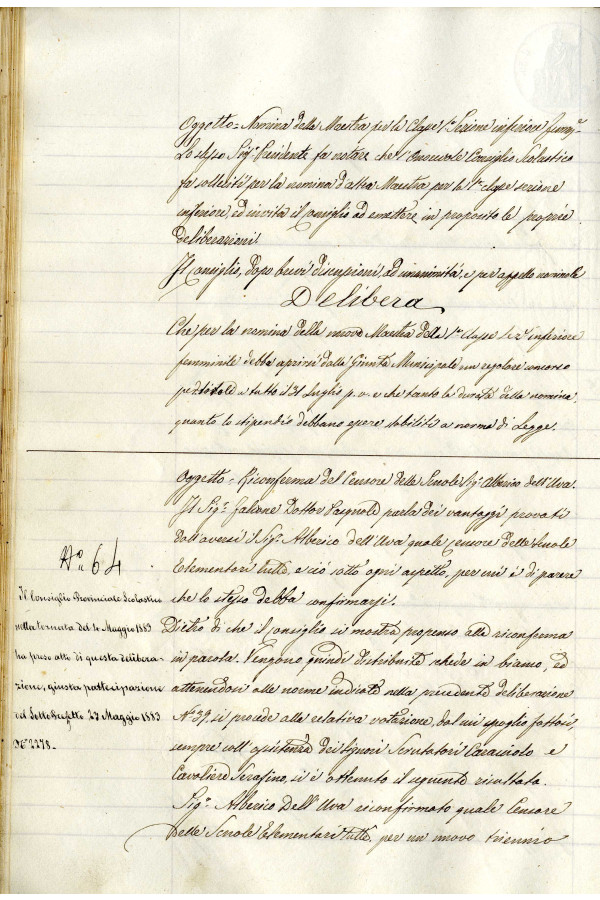 Oggetto = Nomina della Maestra per la Classe 1ª Sezione inferiore femm.e
Lo stesso Sig.r Presidente fa notare che l'Onorevole Consiglio Scolastico
fa sollecito per la nomina d'altra Maestra per la 1ª classe sezione
inferiore, ed invita il Consiglio ad emettere in proposito le proprie
deliberazioni.
Il Consiglio, dopo brevi discussioni, ad unanimità, e per appello nominale
Delibera
Che per la nomina della nuova Maestra della 1ª Classe inferiore
femminile debba aprirsi dalla Giunta Municipale un regolare concorso
a tutto il 31 Luglio p.v. e che tanto la durata della nomina,
quanto lo stipendio debbano essere stabiliti a norma di Legge.
Oggetto = Riconferma del Censore delle Scuole Sig. Alberico dell'Uva.
Il Sig.r Falcone Dottor Pasquale parla dei vantaggi provati
dall'aversi il Sig.r Alberico dell'Uva quale Censore delle Scuole
Elementari tutte, e ciò sotto ogni aspetto, per cui è di parere
che lo stesso debba confermarsi.
Dietro di che il Consiglio si mostra propenso alla riconferma
in parola. Vengono quindi distribuite schede in bianco, ed
attenendosi alle norme indicate nella precedente deliberazione
N.° 39, si procede alla relativa votazione, dal cui spoglio fattosi,
sempre coll'assistenza dei Signori Scrutatori Caracciolo e
Cavaliere Serafino, si è ottenuto il seguente risultato.
Sig.r Alberico Dell'Uva riconfermato quale Censore
delle Scuole Elementari tutte, per un nuovo triennio
N.° 64
Il Consiglio Provinciale Scolastico
nella tornata del 10 Maggio 1883
ha preso atto di questa delibera-
zione, giusta partecipazione
del Sotto Prefetto 27 Maggio 1883
N.° 2278 -